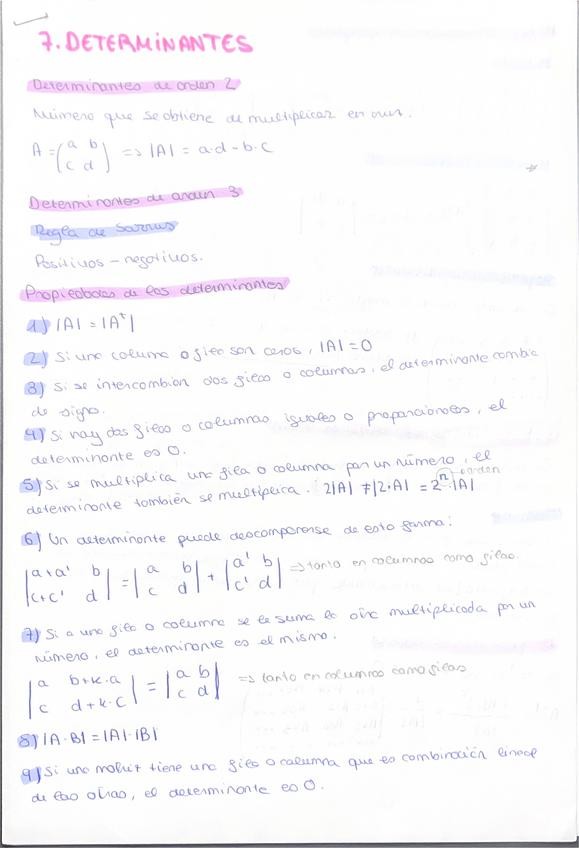 7. DETERMINANTES
Determinantes de orden 2
Número que se obtiene de multiplicar en cruz.
A = (a b
c d) => |A| = a·d - b·c
Determinantes de orden 3
Regla de Sarrus
Positivos - negativos.
Propiedades de los determinantes
1) |A| = |Aᵗ|
2) Si una columna o fila son ceros, |A| = 0
3) Si se intercambian dos filas o columnas, el determinante cambia
de signo.
4) Si hay dos filas o columnas iguales o proporcionales, el
determinante es 0.
5) Si se multiplica una fila o columna por un número, el
determinante también se multiplica. 2|A| ≠ |2·A| = 2ⁿ·|A| orden
6) Un determinante puede descomponerse de esta forma:
|a+a' b| = |a b| + |a' b| => tanto en columnas como filas.
|c+c' d| |c d| |c' d|
7) Si a una fila o columna se le suma la otra multiplicada por un
número, el determinante es el mismo.
|a b+k·a| = |a b| => tanto en columnas como filas
|c d+k·c| |c d|
8) |A·B| = |A|·|B|
9) Si una matriz tiene una fila o columna que es combinación lineal
de las otras, el determinante es 0.